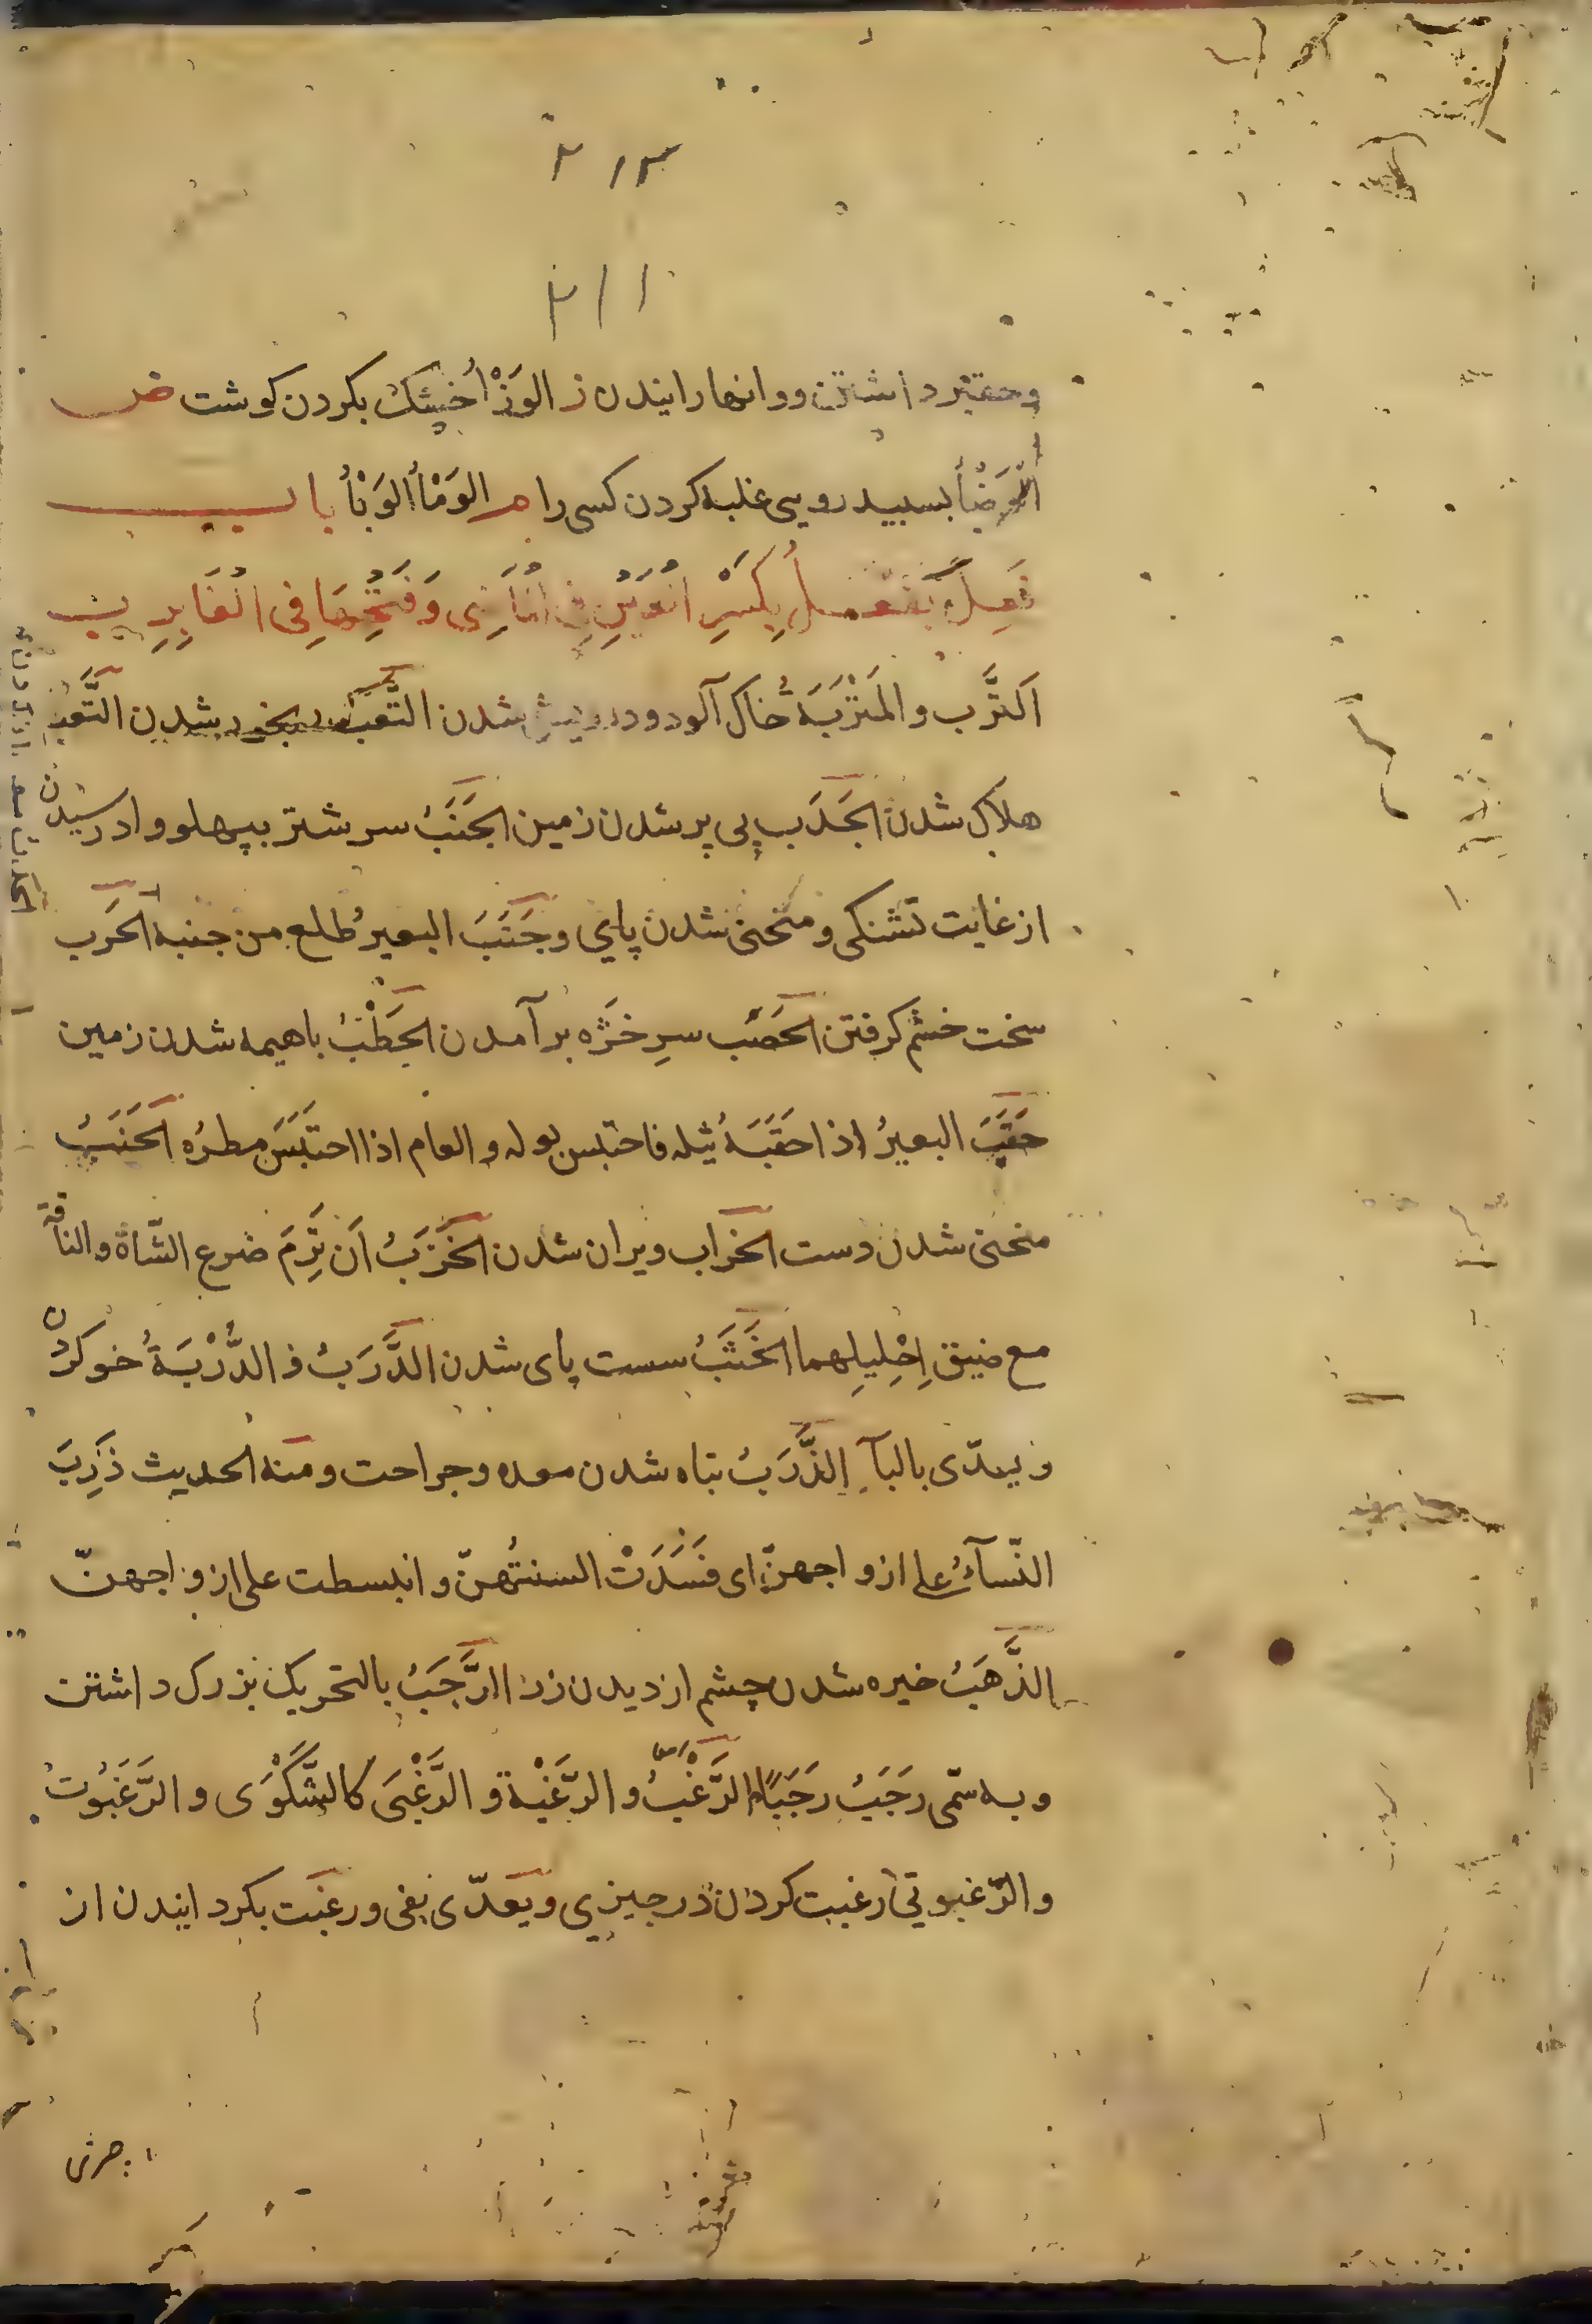 وحقیر داشتن ووانها رانیدن ز الوَزْأُ خشک بکردن کوشت ض
الوَضْأُ بسپید رویی غلبه کردن کسی را م الوَمْأُ الوَبْأُ باب
فَعِلَ يَفْعَلُ بِكَسْرِ الْعَيْنِ فِي الْمَاضِي وَفَتْحِهَا فِى الْغَابِرِ ب
اَلتَّرَب والمَتْرَبَةُ خاک آلود ودرویش شدن التَّعَبُ رنجور شدن التَّغَبُ
هلاک شدن الجَدَب بی بر شدن زمین الجَنَبُ سر شتر بپهلو وادرسیدن
از غایت تشنکی و منحنی شدن پای وجَنَبَ البعیرُ ظلع من جنبه الحَرَب
سخت خشم کرفتن الحَصَب سرِخَژه برآمدن الحَطَبُ باهیمه شدن زمین
حَقَبَ البعیرُ اذا حَقَبَهُ ثیله فاحتبس بوله والعام اذا احتَبَسَ مطرُه الحَنَبُ
منحنی شدن دست الخراب ویران شدن الخَزَبُ اَن تَرِمَ ضرع الشّاة والناقة
مع ضیق اِحْلِیلِهما الخَشَبُ سست پای شدن الدَّرَبُ و الدُّرْبَةُ خو کردن
ویعدّی بالبآء الذَّرَبُ تباه شدن معده وجراحت ومنه الحدیث ذَرِبَ
النّسآءُ علی ازواجهنّ ای فَسَدَتْ السنتُهنّ وانبسطت علی ازواجهنّ
الذَّهَبُ خیره شدن چشم از دیدن زر الرَّجَبُ بالتحریک بزرک داشتن
وبه سمّی رَجَبُ رَجَبًا الرَّغْبُ و الرَّغْبَة و الرَّغْبَى کالشَّكْوَى و الرَّغَبُوت
والرّغبوتیٰ رغبت کردن در چیزی ویعدّی بفی ورغبت بکردانیدن از